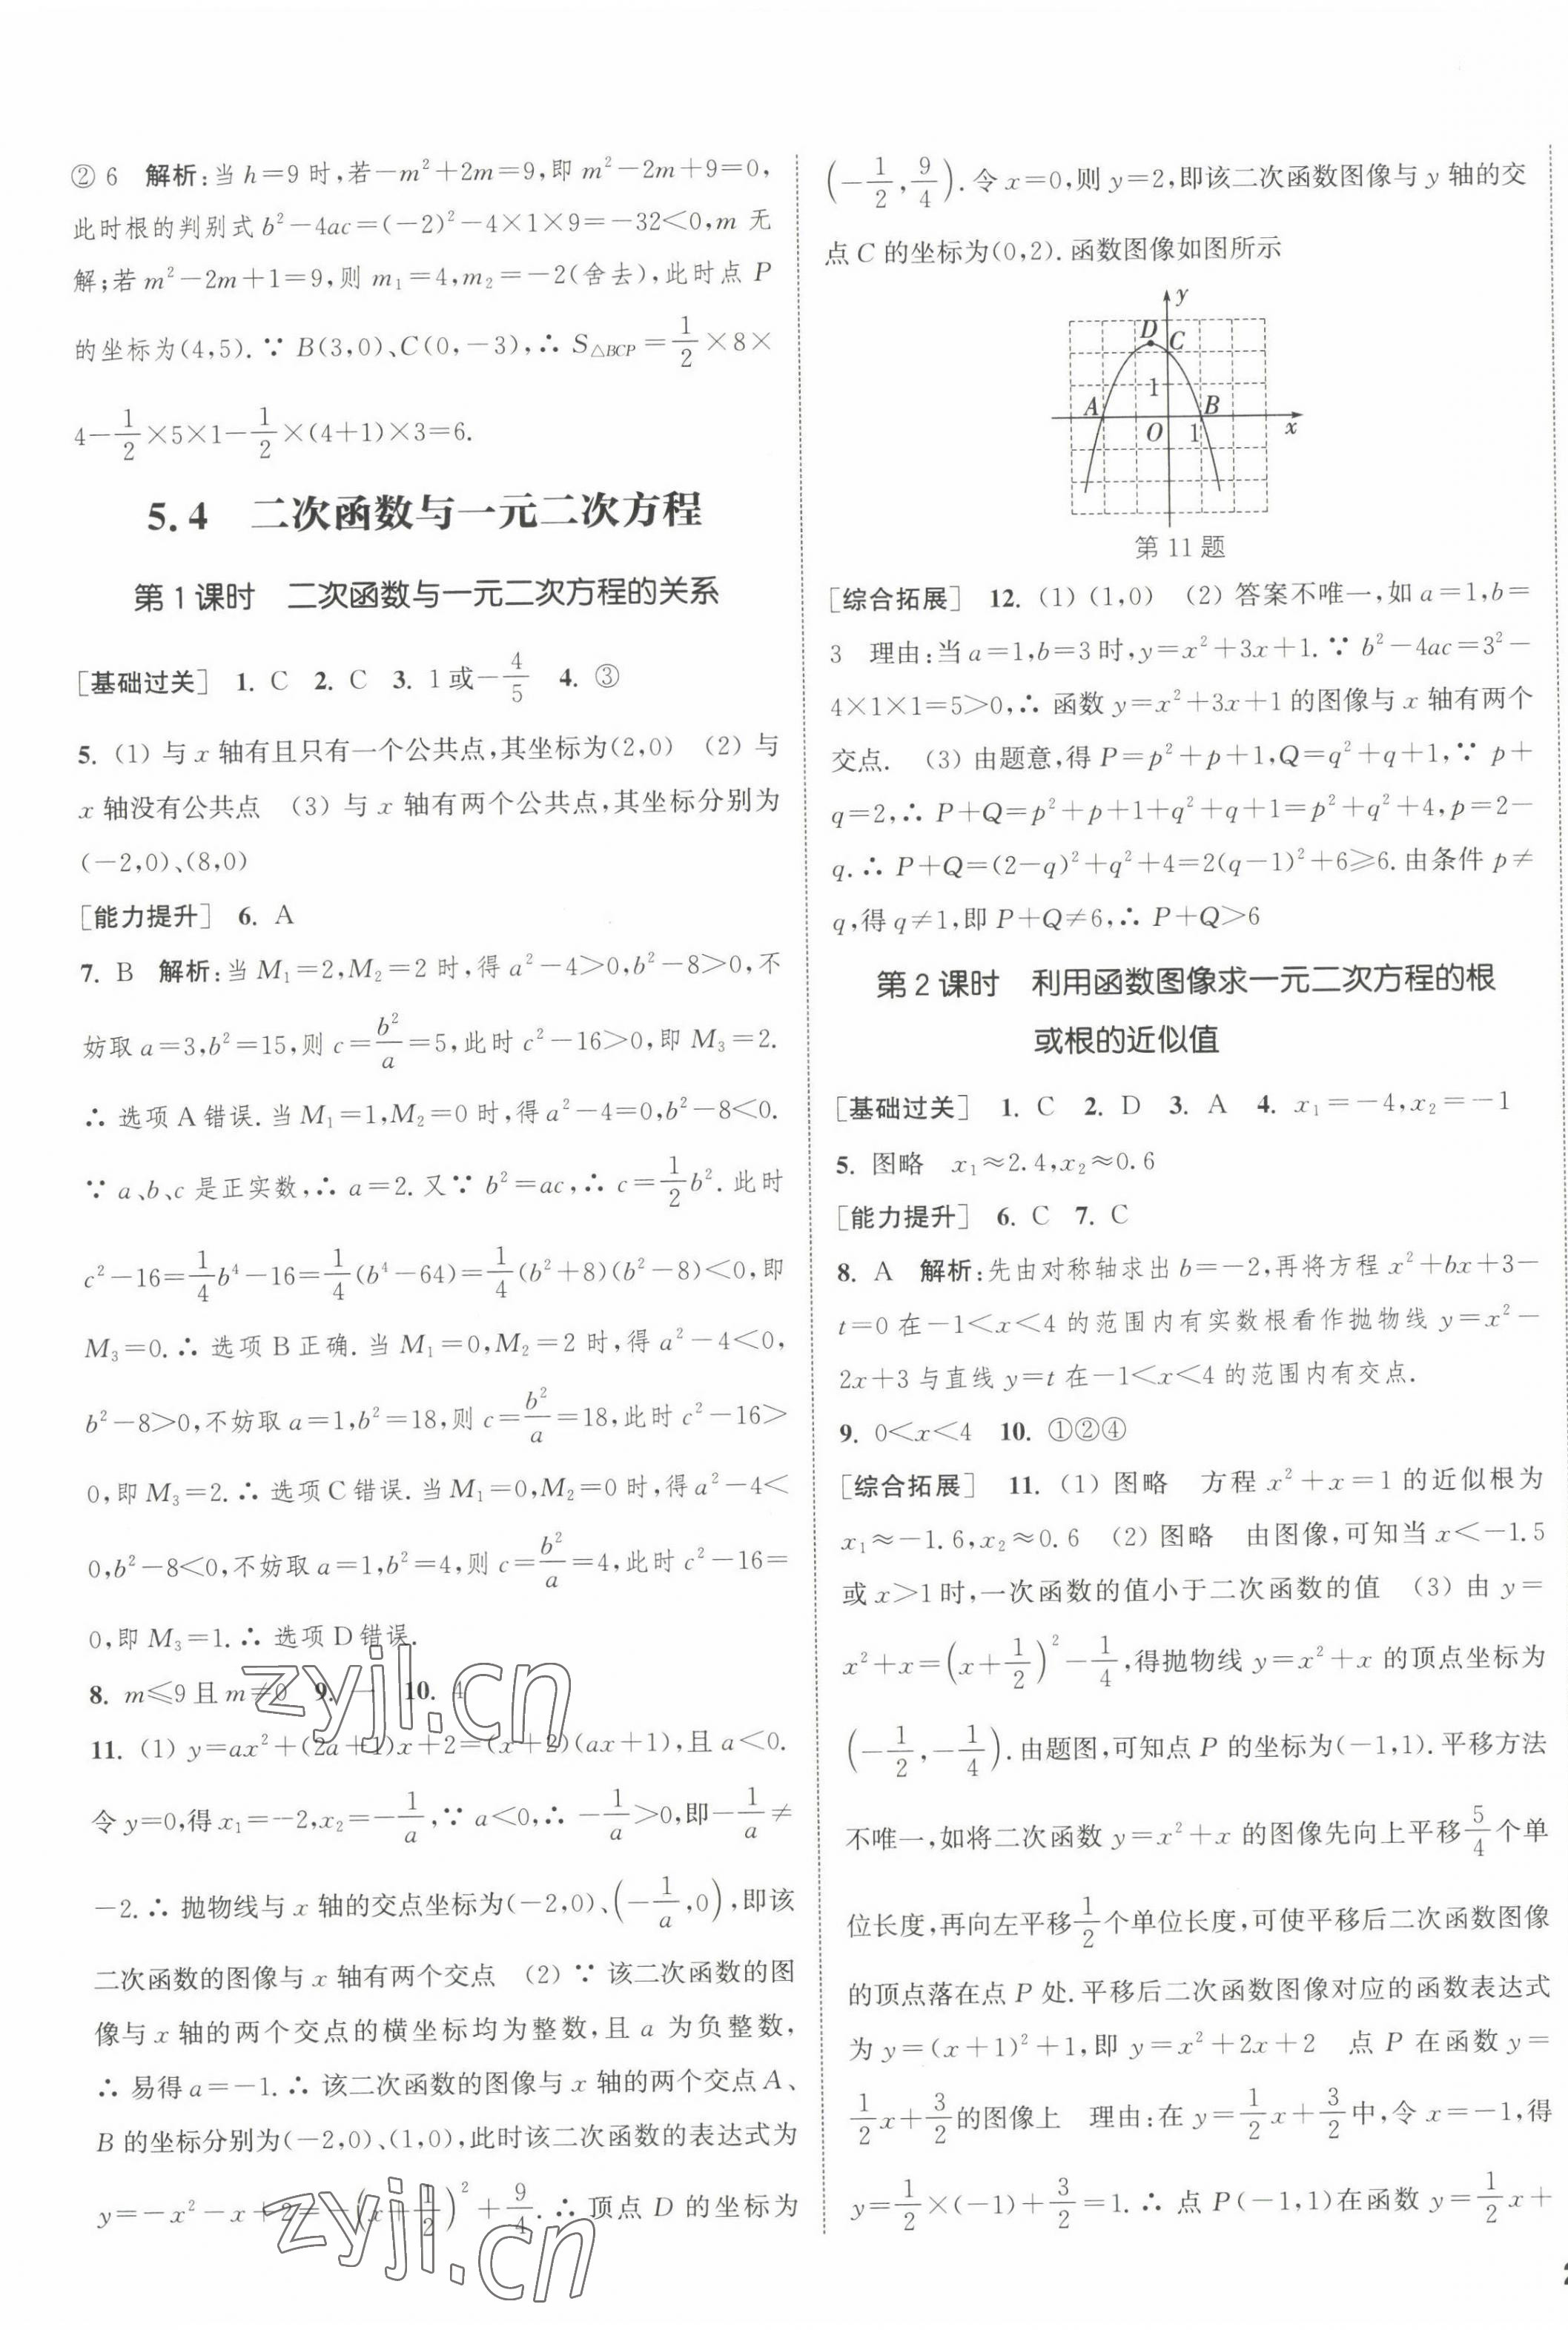 ② 6　解析:当 h=9 时,若-m²+2m=9,即 m²-2m+9=0,
此时根的判别式 b²-4ac=(-2)²-4×1×9=-32<0,m 无
解;若 m²-2m+1=9,则 m₁=4,m₂=-2(舍去),此时点 P
的坐标为(4,5).∵ B(3,0)、C(0,-3),∴ S△BCP=1/2×8×
4-1/2×5×1-1/2×(4+1)×3=6.
5.4　二次函数与一元二次方程
第 1 课时　二次函数与一元二次方程的关系
[基础过关]　1. C　2. C　3. 1或-4/5　4. ③
5. (1) 与 x 轴有且只有一个公共点,其坐标为(2,0)　(2) 与
x 轴没有公共点　(3) 与 x 轴有两个公共点,其坐标分别为
(-2,0)、(8,0)
[能力提升]　6. A
7. B　解析:当 M₁=2,M₂=2 时,得 a²-4>0,b²-8>0,不
妨取 a=3,b²=15,则 c=b²/a=5,此时 c²-16>0,即 M₃=2.
∴ 选项 A 错误.当 M₁=1,M₂=0 时,得 a²-4=0,b²-8<0.
∵ a、b、c 是正实数,∴ a=2.又∵ b²=ac,∴ c=1/2b².此时
c²-16=1/4b⁴-16=1/4(b⁴-64)=1/4(b²+8)(b²-8)<0,即
M₃=0.∴ 选项 B 正确.当 M₁=0,M₂=2 时,得 a²-4<0,
b²-8>0,不妨取 a=1,b²=18,则 c=b²/a=18,此时 c²-16>
0,即 M₃=2.∴ 选项 C 错误.当 M₁=0,M₂=0 时,得 a²-4<
0,b²-8<0,不妨取 a=1,b²=4,则 c=b²/a=4,此时 c²-16=
0,即 M₃=1.∴ 选项 D 错误.
8. m≤9 且 m≠0　9.　10. 4
11. (1) y=ax²+(2a+1)x+2=(x+2)(ax+1),且 a<0.
令 y=0,得 x₁=-2,x₂=-1/a,∵ a<0,∴ -1/a>0,即-1/a≠
-2.∴ 抛物线与 x 轴的交点坐标为(-2,0)、(-1/a,0),即该
二次函数的图像与 x 轴有两个交点　(2) ∵ 该二次函数的图
像与 x 轴的两个交点的横坐标均为整数,且 a 为负整数,
∴ 易得 a=-1.∴ 该二次函数的图像与 x 轴的两个交点 A、
B 的坐标分别为(-2,0)、(1,0),此时该二次函数的表达式为
y=-x²-x+2=-(x+1/2)²+9/4.∴ 顶点 D 的坐标为
(-1/2,9/4).令 x=0,则 y=2,即该二次函数图像与 y 轴的交
点 C 的坐标为(0,2).函数图像如图所示
y
D
C
1
A
B
O
1
x
第 11 题
[综合拓展]　12. (1) (1,0)　(2) 答案不唯一,如 a=1,b=
3　理由:当 a=1,b=3 时,y=x²+3x+1.∵ b²-4ac=3²-
4×1×1=5>0,∴ 函数 y=x²+3x+1 的图像与 x 轴有两个
交点.　(3) 由题意,得 P=p²+p+1,Q=q²+q+1,∵ p+
q=2,∴ P+Q=p²+p+1+q²+q+1=p²+q²+4,p=2-
q.∴ P+Q=(2-q)²+q²+4=2(q-1)²+6≥6.由条件 p≠
q,得 q≠1,即 P+Q≠6,∴ P+Q>6
第 2 课时　利用函数图像求一元二次方程的根
或根的近似值
[基础过关]　1. C　2. D　3. A　4. x₁=-4,x₂=-1
5. 图略　x₁≈2.4,x₂≈0.6
[能力提升]　6. C　7. C
8. A　解析:先由对称轴求出 b=-2,再将方程 x²+bx+3-
t=0 在-1<x<4 的范围内有实数根看作抛物线 y=x²-
2x+3 与直线 y=t 在-1<x<4 的范围内有交点.
9. 0<x<4　10. ①②④
[综合拓展]　11. (1) 图略　方程 x²+x=1 的近似根为
x₁≈-1.6,x₂≈0.6　(2) 图略　由图像,可知当 x<-1.5
或 x>1 时,一次函数的值小于二次函数的值　(3) 由 y=
x²+x=(x+1/2)²-1/4,得抛物线 y=x²+x 的顶点坐标为
(-1/2,-1/4).由题图,可知点 P 的坐标为(-1,1).平移方法
不唯一,如将二次函数 y=x²+x 的图像先向上平移5/4个单
位长度,再向左平移1/2个单位长度,可使平移后二次函数图像
的顶点落在点 P 处.平移后二次函数图像对应的函数表达式
为 y=(x+1)²+1,即 y=x²+2x+2　点 P 在函数 y=
1/2x+3/2的图像上　理由:在 y=1/2x+3/2中,令 x=-1,得
y=1/2×(-1)+3/2=1.∴ 点 P(-1,1)在函数 y=1/2x+
zyjl.cn
zyjl.cn